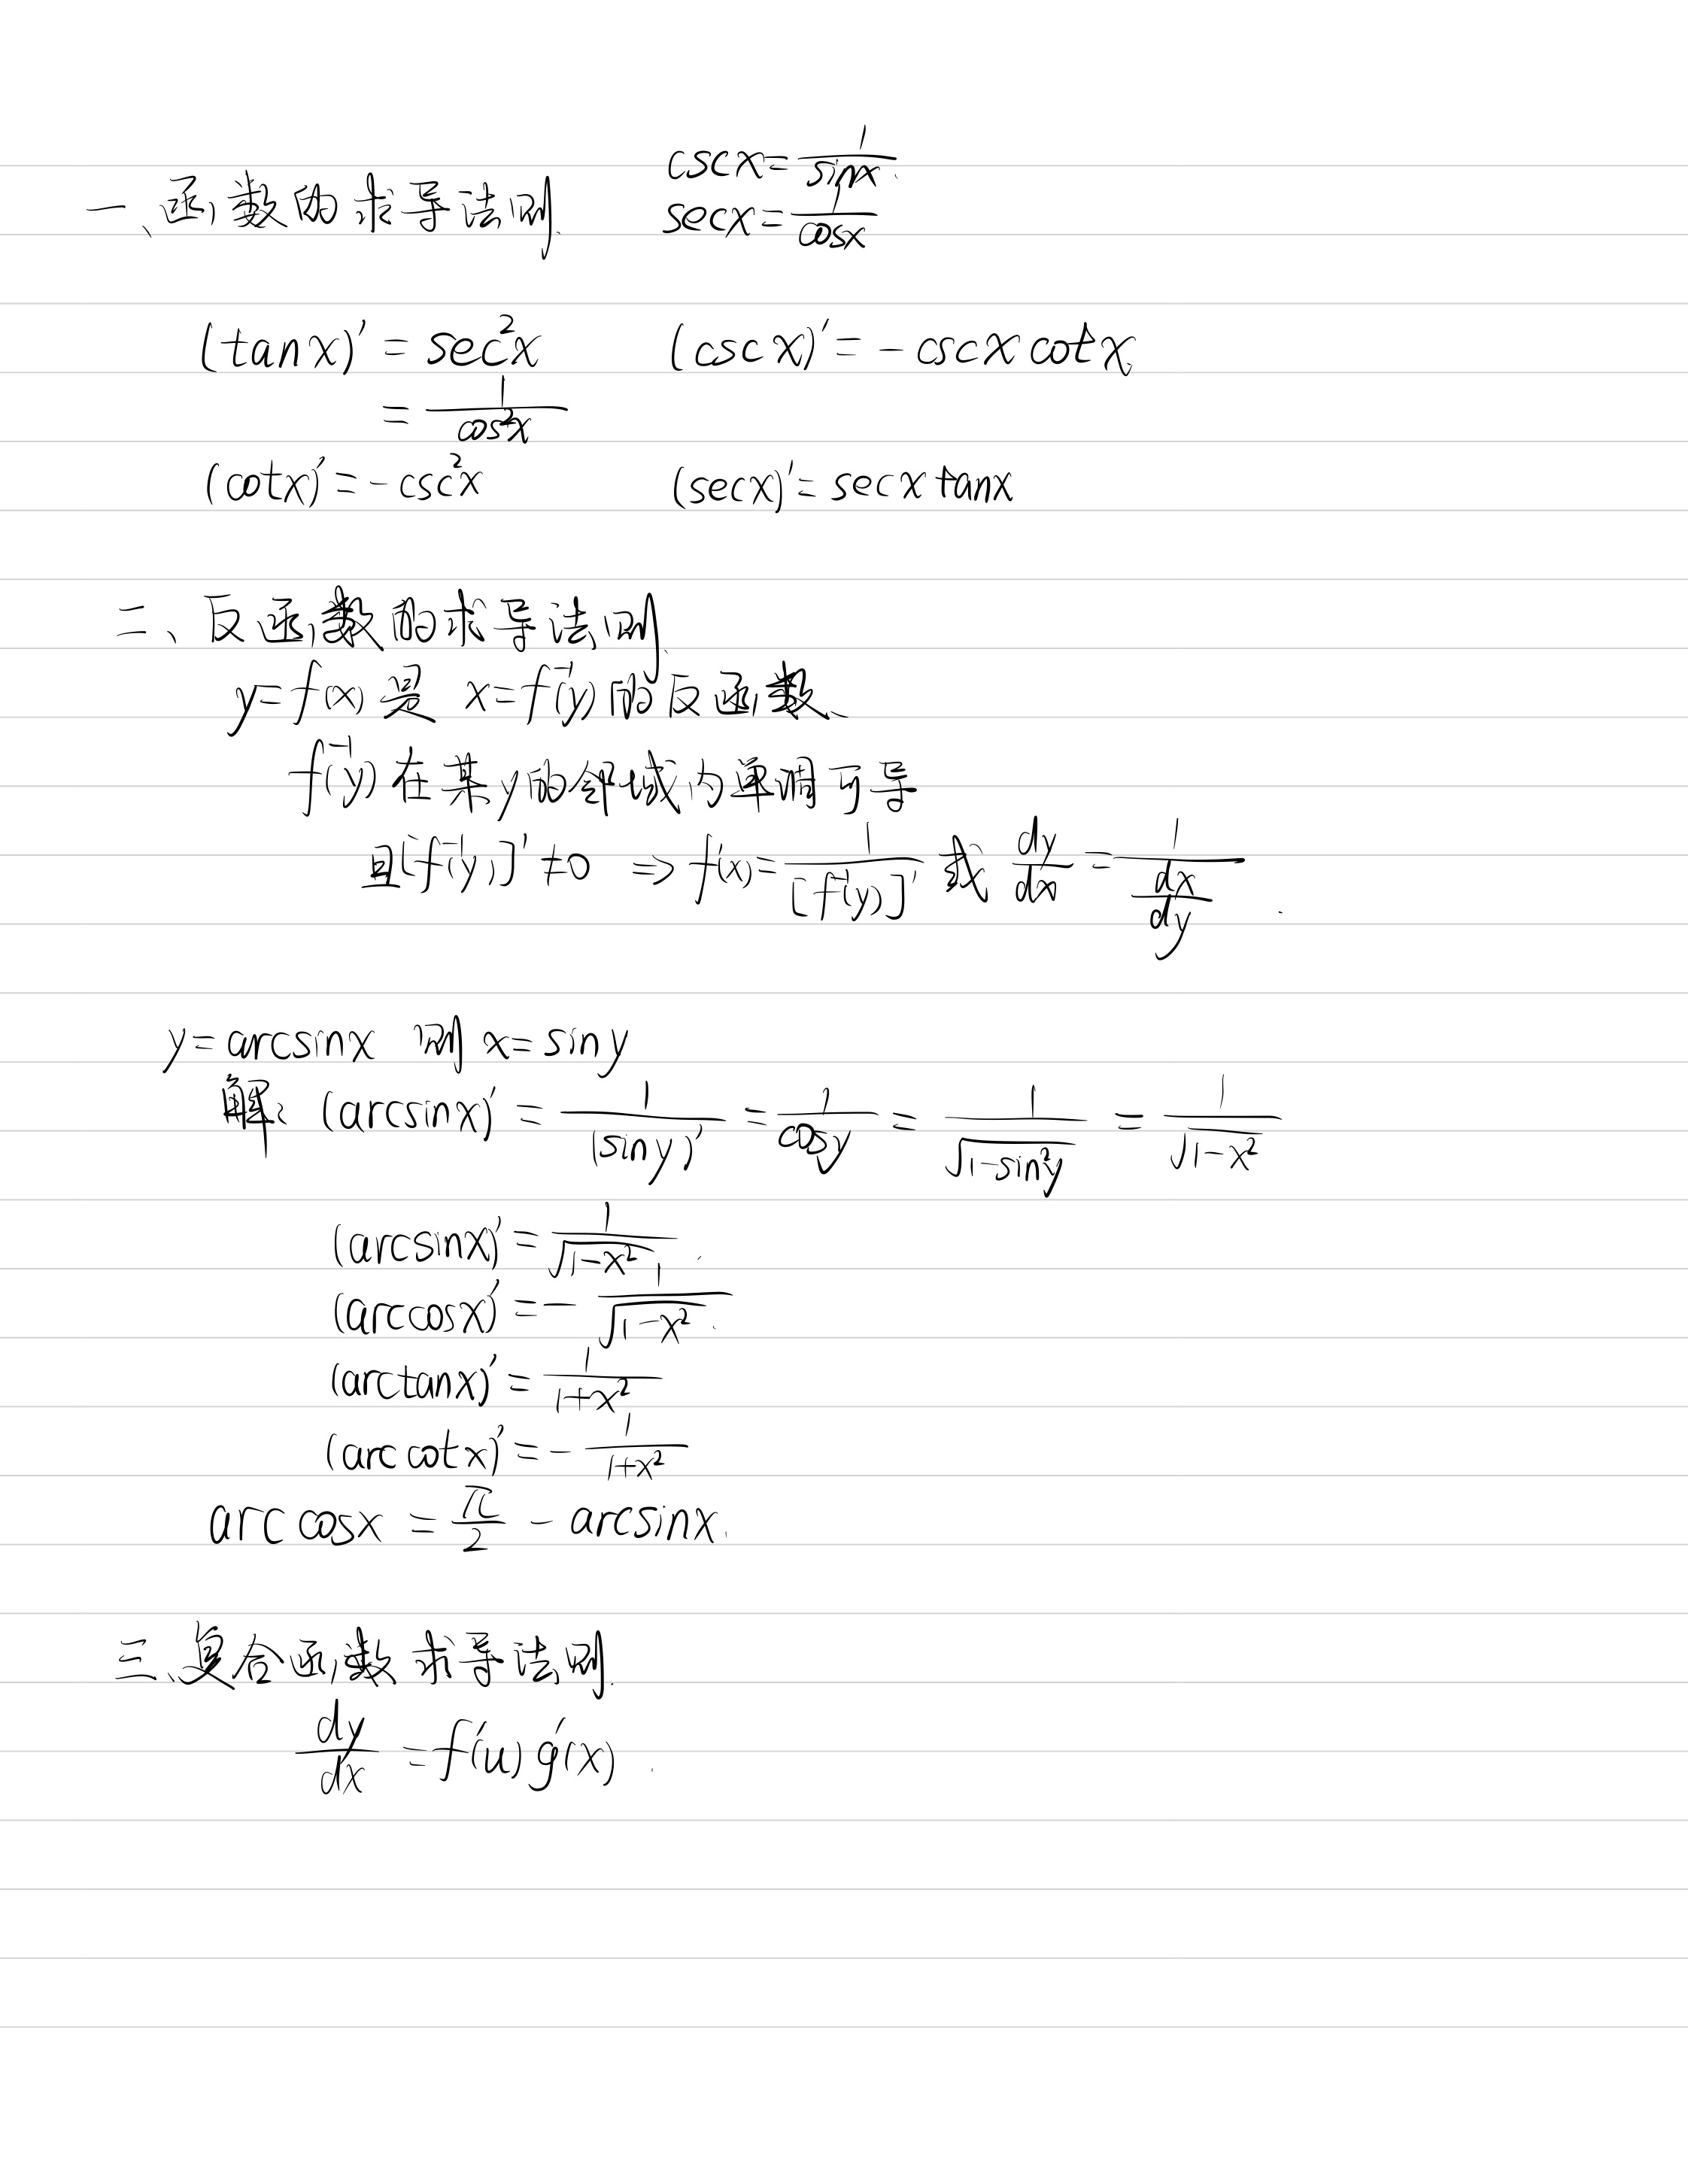 cscx = 1/sinx
一、函数的求导法则
secx = 1/cosx
(tanx)' = sec²x (cscx)' = -cscx cotx
= 1/cos²x
(cotx)' = -csc²x (secx)' = secx tanx
二、反函数的求导法则
y=f(x) 是 x=f⁻¹(y) 的反函数、
f⁻¹(y) 在某y的邻域内单调可导
且[f⁻¹(y)]' ≠ 0 ⇒ f'(x) = 1/[f⁻¹(y)]' 或 dy/dx = 1/(dx/dy)
y = arcsinx 则 x = siny
解: (arcsinx)' = 1/(siny)' = 1/cosy = 1/√(1-sin²y) = 1/√(1-x²)
(arcsinx)' = 1/√(1-x²)
(arccosx)' = - 1/√(1-x²)
(arctanx)' = 1/(1+x²)
(arccotx)' = - 1/(1+x²)
arccosx = π/2 - arcsinx.
三、复合函数求导法则
dy/dx = f'(u) g'(x)